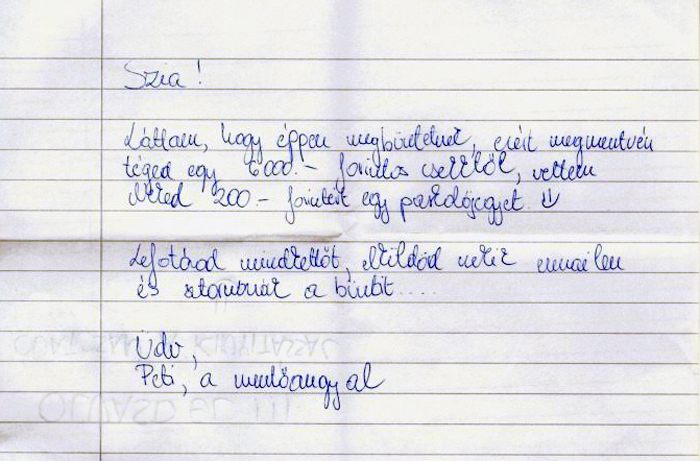 Szia!
Láttam, hogy éppen megbüntetnek, ezért megmentvén
téged egy 6000.- forintos csekktől, vettem
Neked 200- forintért egy parkolójegyet.
Lefotózod mindkettőt, elküldöd nekik emailen
és a büntit....
Üdv,
Peti, a mentőangyal
OLVASD EL !!!